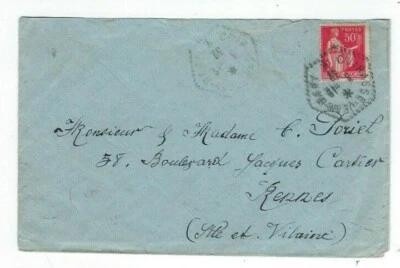 POSTES
50c
Monsieur & Madame C. Soriel
58, Boulevard Jacques Cartier
Rennes
(Ille et Vilaine)